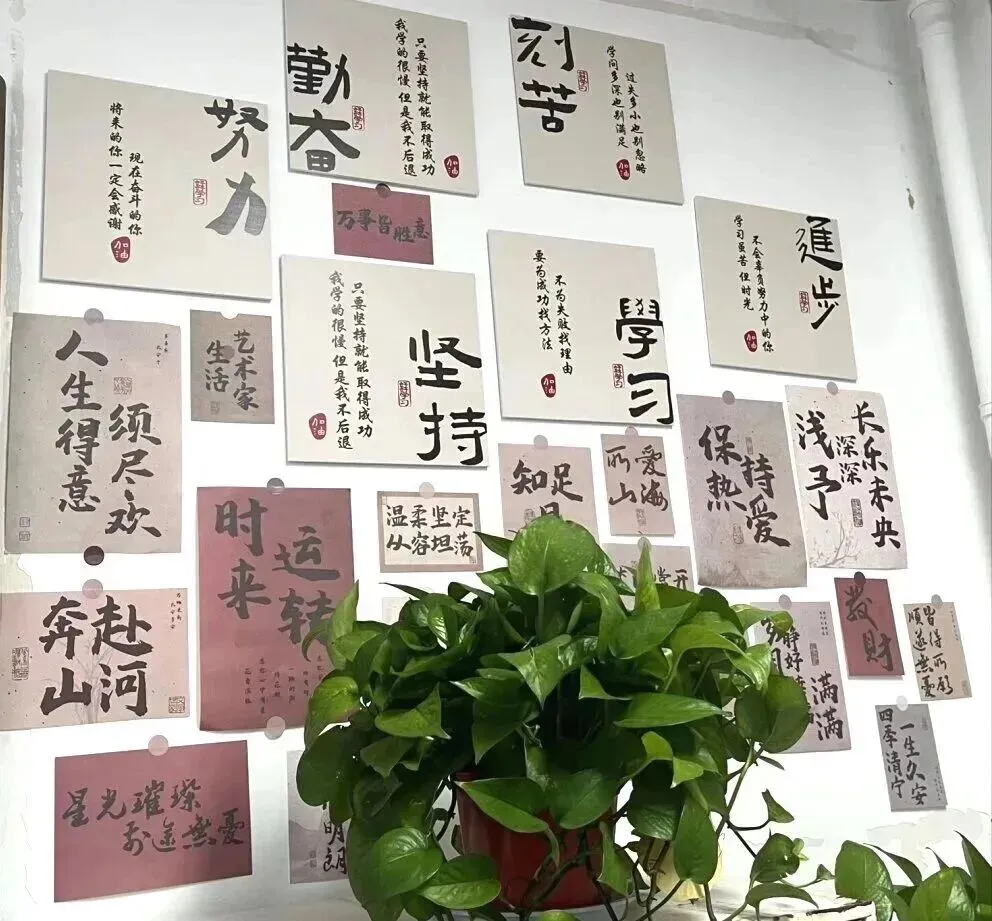 努力
现在奋斗的你
将来的你一定会感谢
加油
勤奋
只要坚持就能取得成功
我学的很慢但是我不后退
加油
刻苦
过失多小也别忽略
学问多深也别满足
加油
万事皆胜意
坚持
只要坚持就能取得成功
我学的很慢但是我不后退
加油
學习
不为失败找理由
要为成功找方法
加油
進步
不会辜负努力中的你
学习虽苦但时光
加油
人生得意
须尽欢
艺术家
生活
时来
运转
温柔坚定
从容坦荡
知足
爱海
所山
保持
热爱
长乐未央
深深
浅予
赴河
奔山
星光璀璨
前途無憂
發财
皆得所愿
順遂無憂
静好
满满
一生久安
四季清宁
明朗